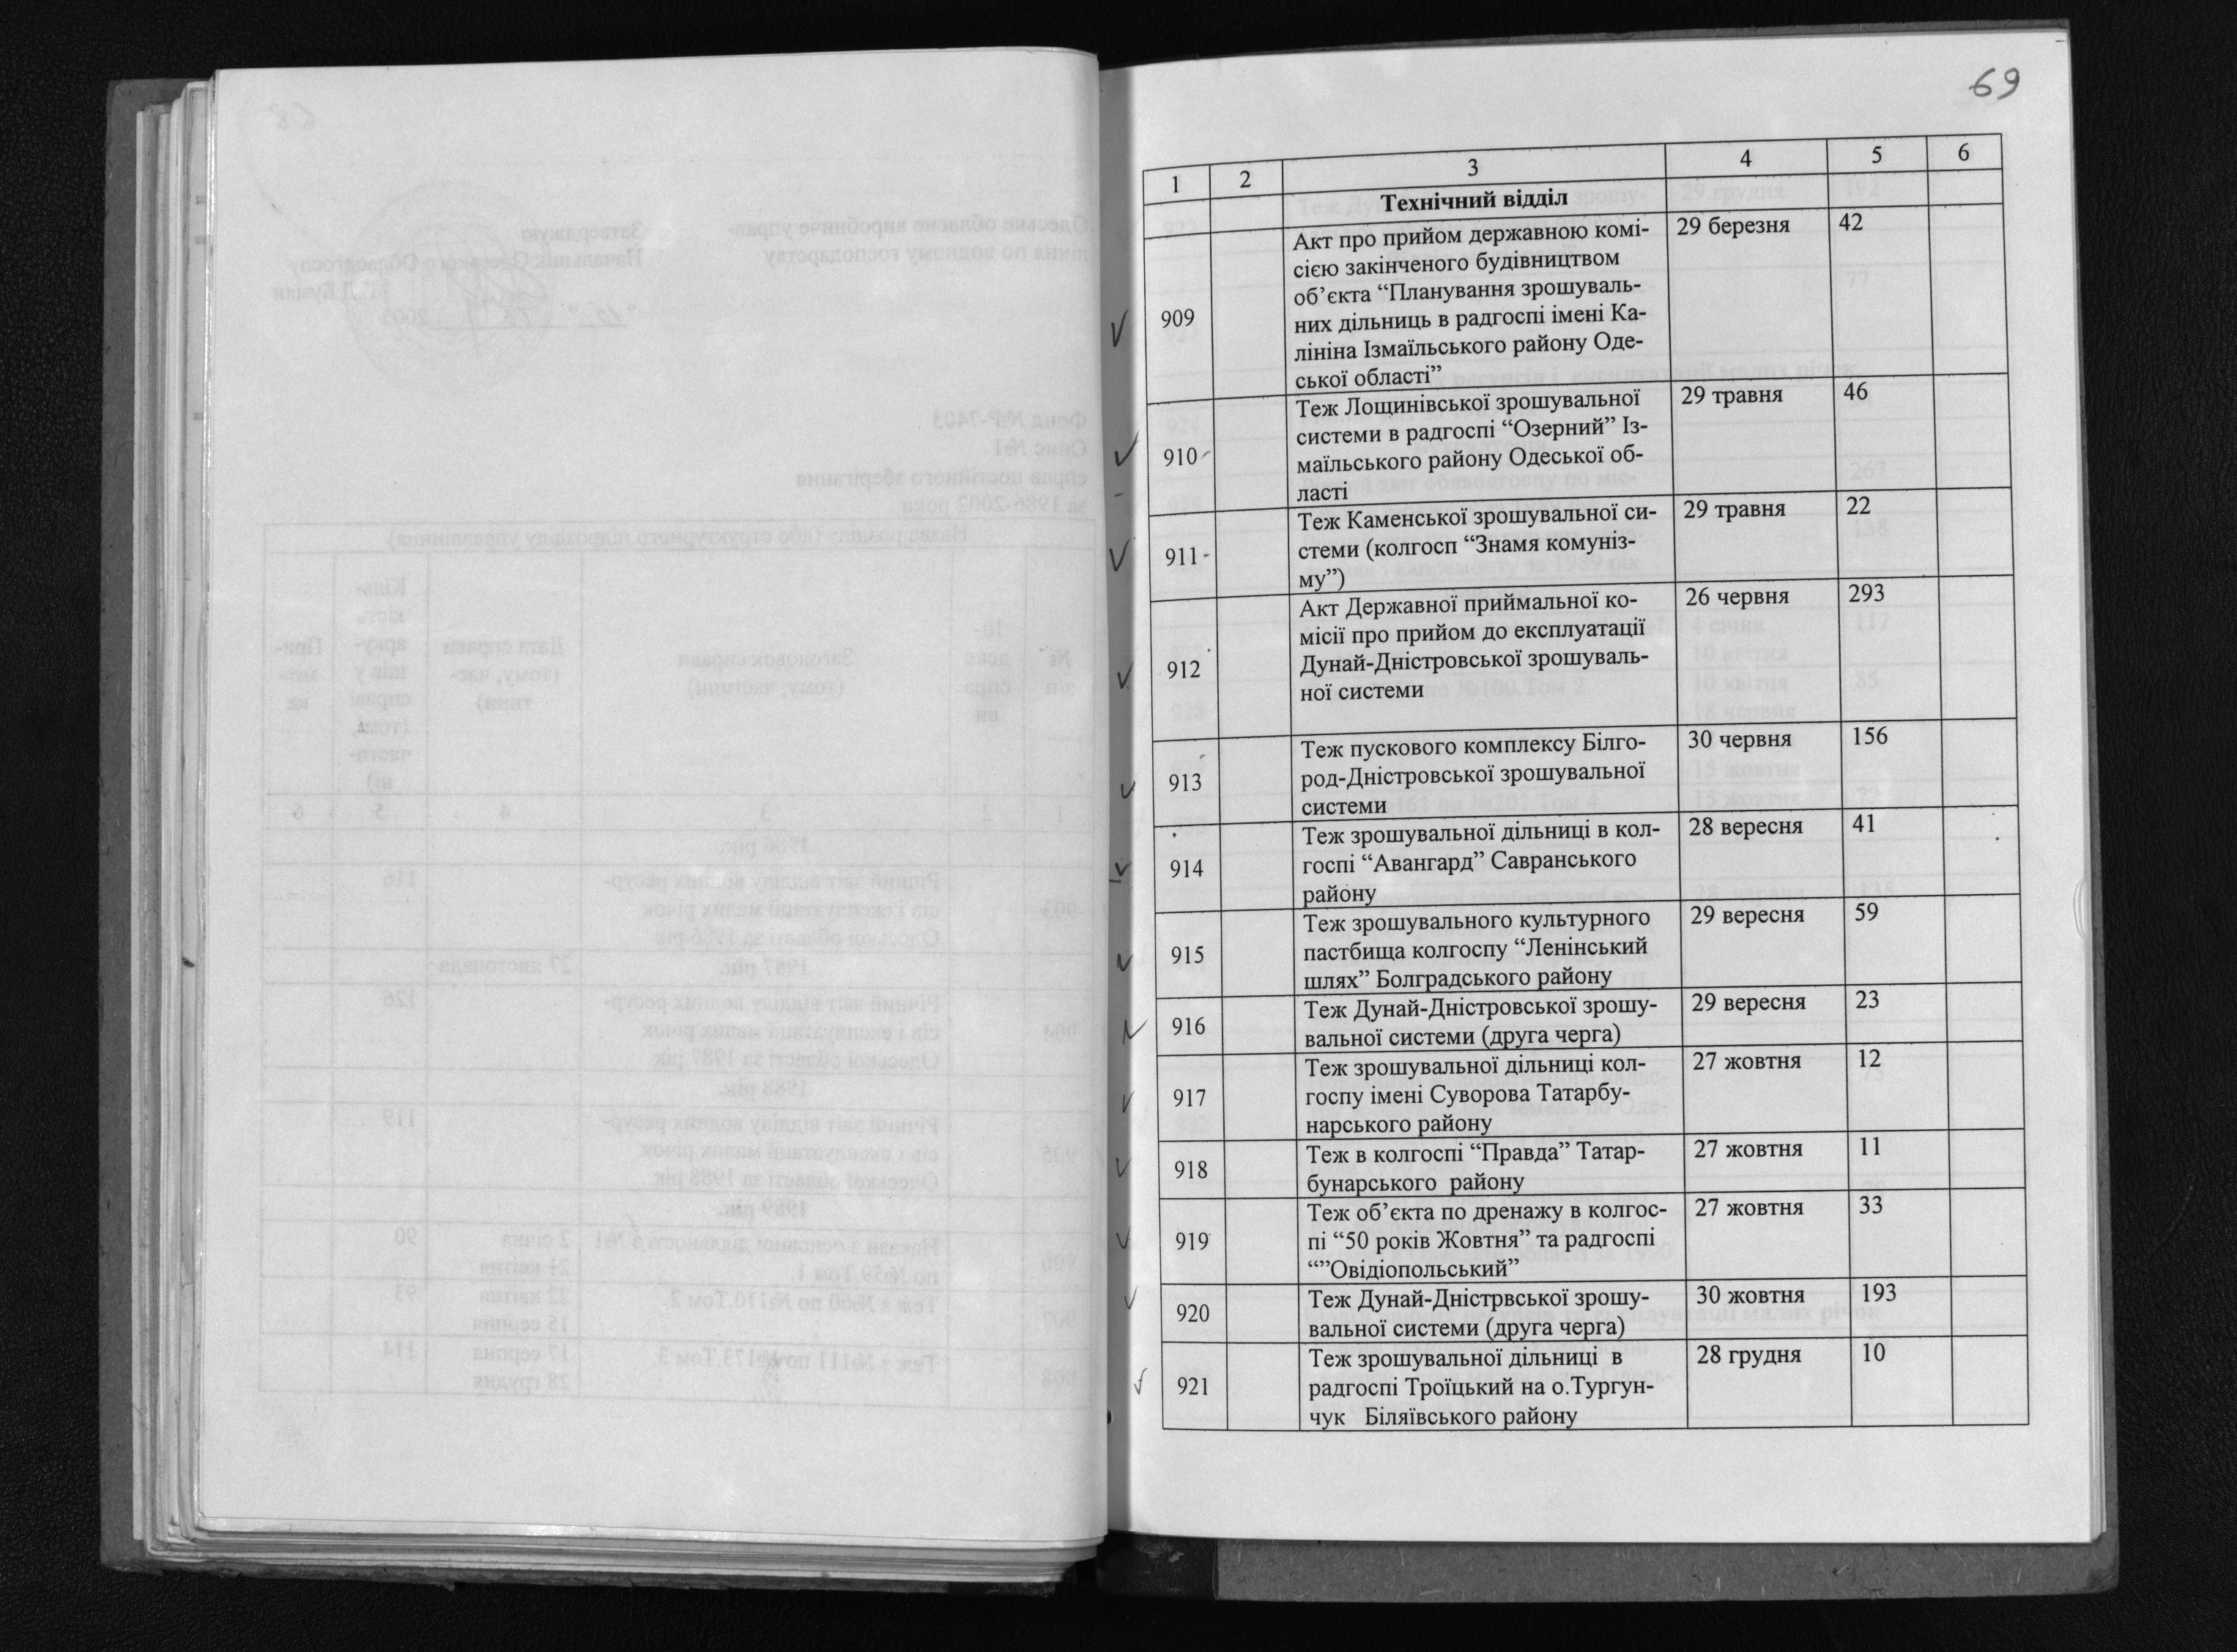 69
1 2 3 4 5 6
Технічний відділ
909 Акт про прийом державною комі- 29 березня 42
сією закінченого будівництвом
об’єкта “Планування зрошуваль-
них дільниць в радгоспі імені Ка-
лініна Ізмаїльського району Оде-
ської області”
910 Теж Лощинівської зрошувальної 29 травня 46
системи в радгоспі “Озерний” Із-
маїльського району Одеської об-
ласті
911 Теж Каменської зрошувальної си- 29 травня 22
стеми (колгосп “Знамя комуніз-
му”)
912 Акт Державної приймальної ко- 26 червня 293
місії про прийом до експлуатації
Дунай-Дністровської зрошуваль-
ної системи
913 Теж пускового комплексу Білго- 30 червня 156
род-Дністровської зрошувальної
системи
914 Теж зрошувальної дільниці в кол- 28 вересня 41
госпі “Авангард” Савранського
району
915 Теж зрошувального культурного 29 вересня 59
пастбища колгоспу “Ленінський
шлях” Болградського району
916 Теж Дунай-Дністровської зрошу- 29 вересня 23
вальної системи (друга черга)
917 Теж зрошувальної дільниці кол- 27 жовтня 12
госпу імені Суворова Татарбу-
нарського району
918 Теж в колгоспі “Правда” Татар- 27 жовтня 11
бунарського району
919 Теж об’єкта по дренажу в колгос- 27 жовтня 33
пі “50 років Жовтня” та радгоспі
“”Овідіопольський”
920 Теж Дунай-Дністрвської зрошу- 30 жовтня 193
вальної системи (друга черга)
921 Теж зрошувальної дільниці в 28 грудня 10
радгоспі Троїцький на о.Тургун-
чук Біляївського району